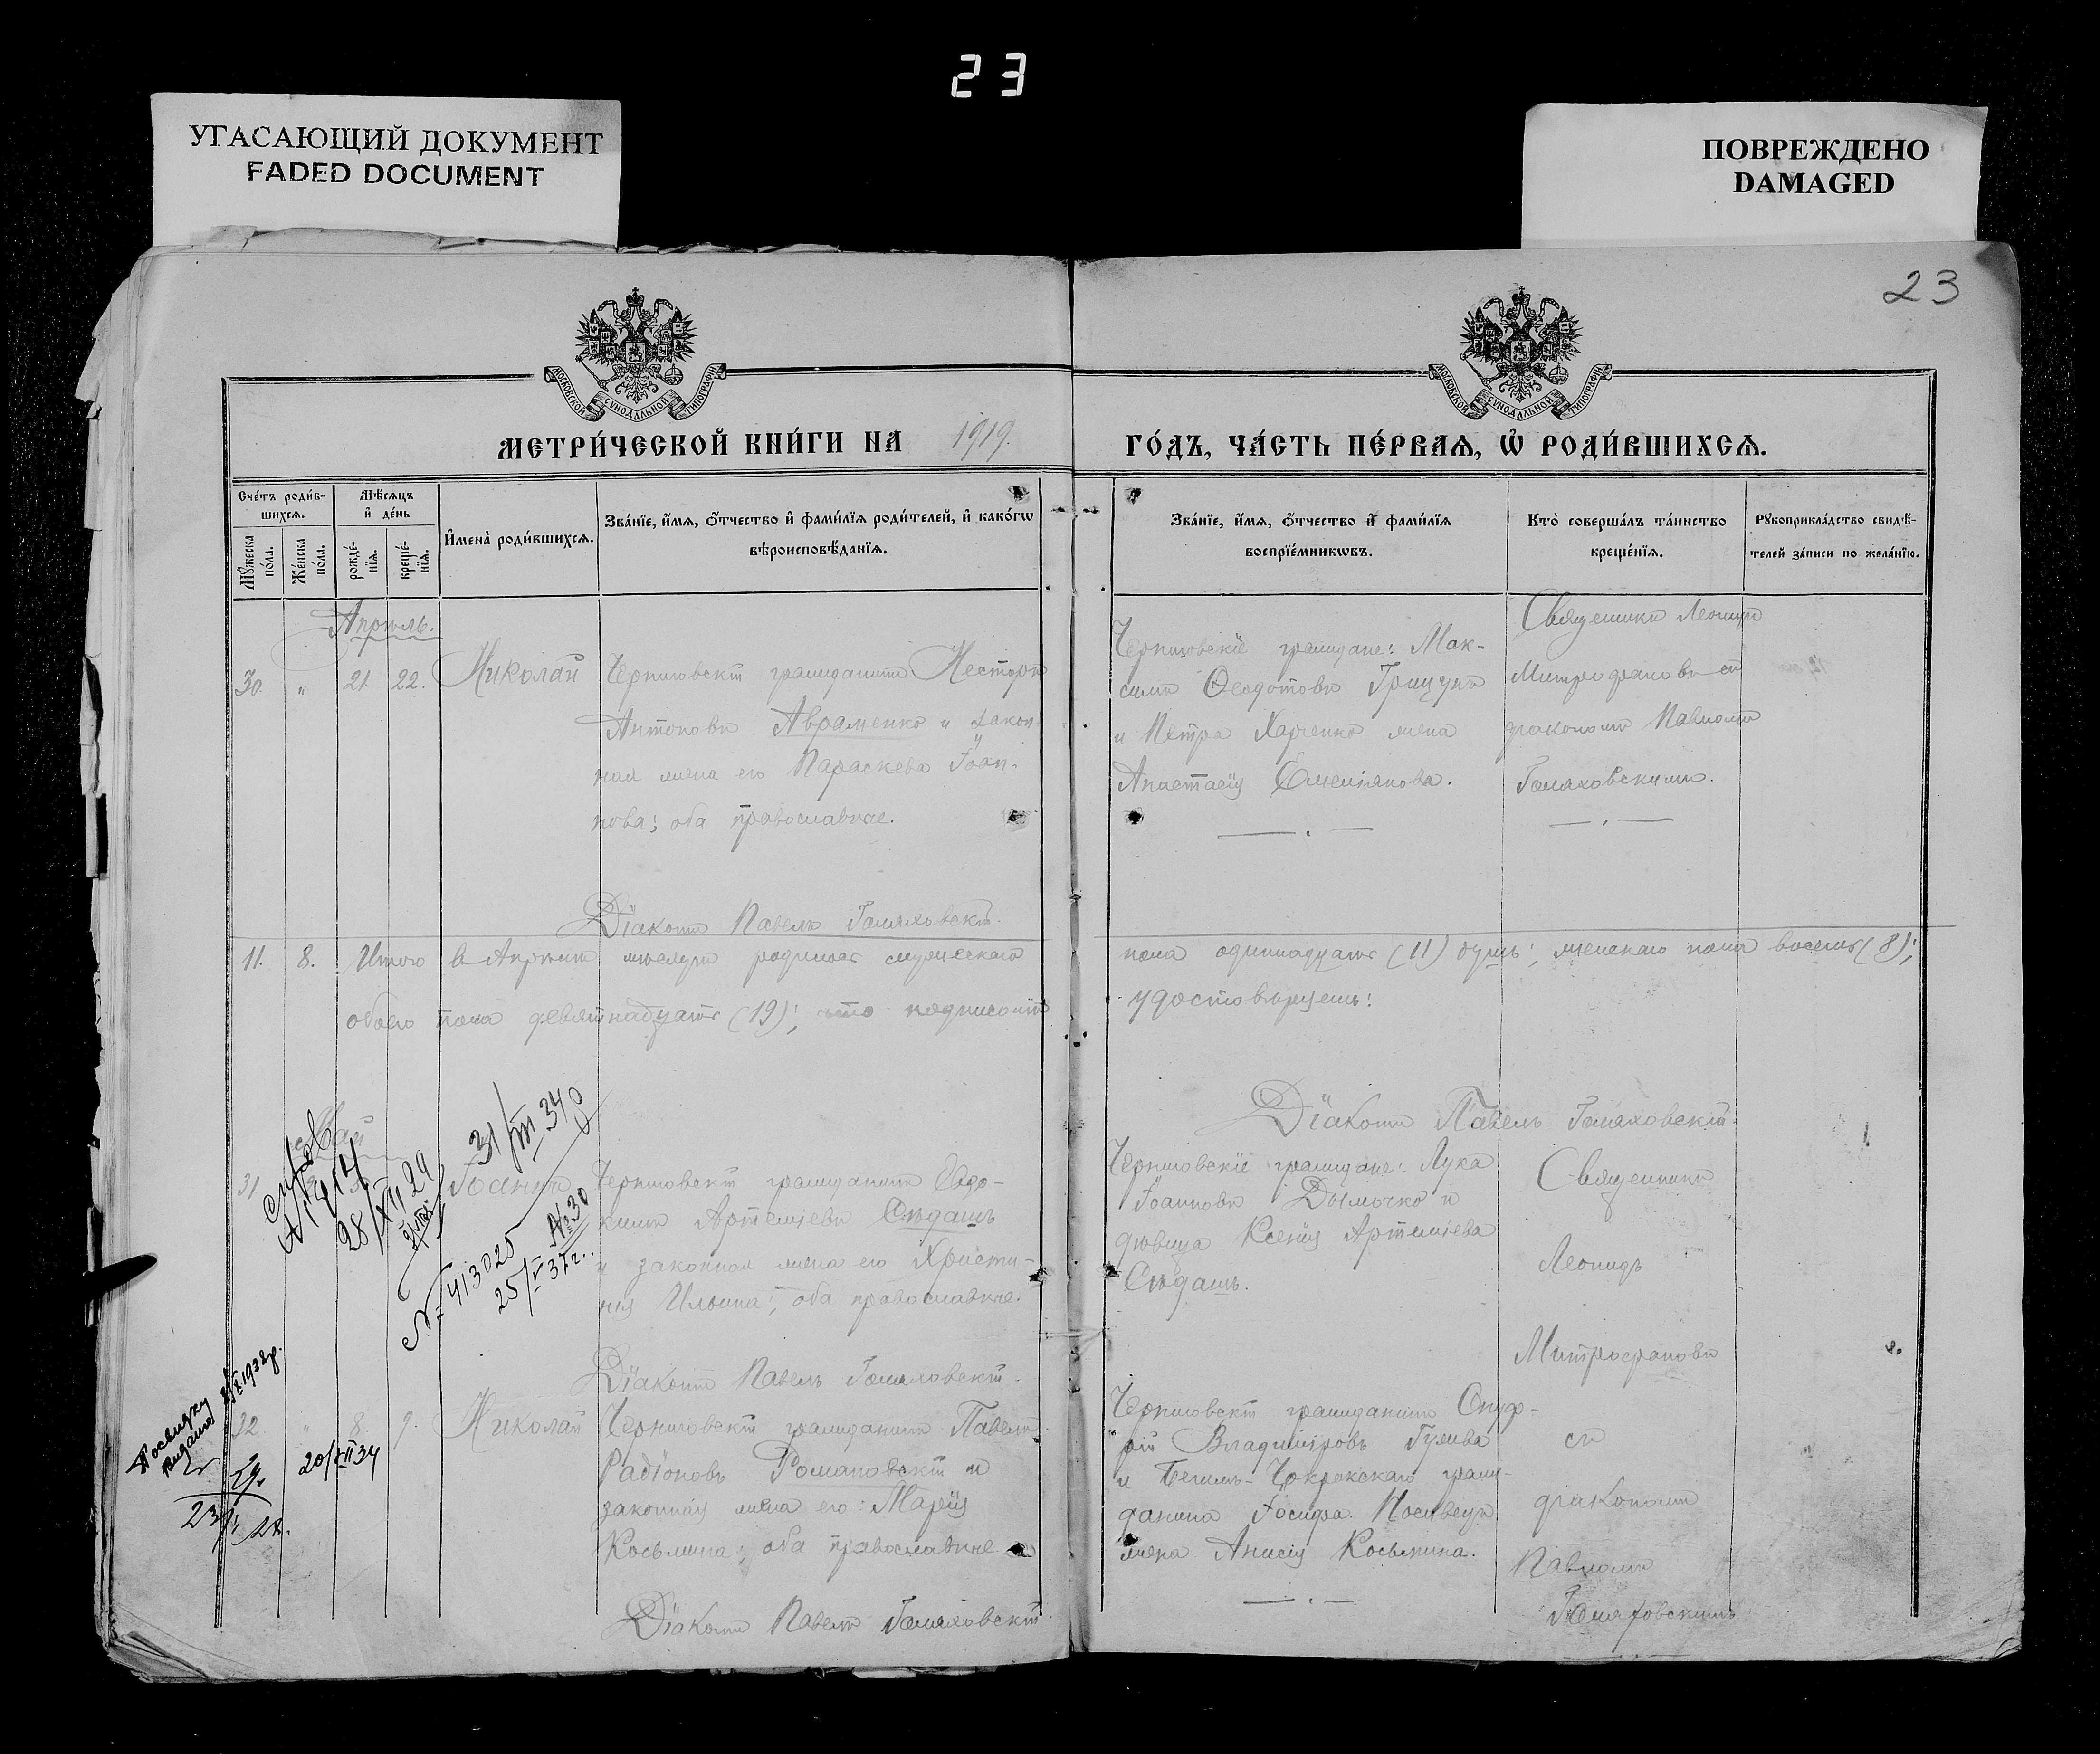 23
УГАСАЮЩИЙ ДОКУМЕНТ
FADED DOCUMENT
ПОВРЕЖДЕНО
DAMAGED
23
МОСКОВСКОЙ СѴНОДАЛЬНОЙ ТИПОГРАФІИ
МОСКОВСКОЙ СѴНОДАЛЬНОЙ ТИПОГРАФІИ
МЕТРИ́ЧЕСКОЙ КНИ́ГИ НА 1919.
ГО́ДЪ, ЧА́СТЬ ПЕ́РВАѦ, Ѡ҆ РОДИ́ВШИХСѦ.
Сче́тъ роди́в-
шихсѧ.
Мꙋ́жеска по́ла.
Же́нска по́ла.
Мѣ́сѧцъ
и҆ де́нь
рожде́-
нїѧ.
креще́-
нїѧ.
И҆мена̀ роди́вшихсѧ.
Зва́нїе, и҆́мѧ, ѻ҆́тчество и҆ фами́лїѧ роди́телей, и҆ како́гѡ
вѣроисповѣ́данїѧ.
Зва́нїе, и҆́мѧ, ѻ҆́тчество и҆ фами́лїѧ
воспрїе́мникѡвъ.
Кто̀ соверша́лъ та́инство
креще́нїѧ.
Рꙋкоприкла́дство свидѣ́-
телей за́писи по жела́нїю.
Апрѣль.
30. " 21. 22. Николай
Черниговскій гражданинъ Несторъ
Антоновъ Авраменко и закон-
ная жена его Параскева Іоан-
нова; оба православные.
Діаконъ Павелъ Голяховскій.
Черниговскіе граждане: Мак-
симъ Ѳеодотовъ Грицунъ
и Петра Харченко жена
Анастасія Емельянова.
Священникъ Леонидъ
Митрофановъ съ
діакономъ Павломъ
Голяховскимъ.
11. 8. Итого въ Апрѣлѣ мѣсяцѣ родилось мужескаго
пола одиннадцать (11) душъ; женскаго пола восемь (8);
обоего пола девятнадцать (19); что подписомъ
удостовѣряемъ:
Діаконъ Павелъ Голяховскій.
Май
31 Іоаннъ
Черниговскій гражданинъ Евдо-
кимъ Артеміевъ Сѣдашъ
и законная жена его Христи-
нія Ильина; оба православные.
Діаконъ Павелъ Голяховскій.
Черниговскіе граждане: Лука
Іоанновъ Дымочко и
дѣвица Ксенія Артеміева
Сѣдашъ.
Священникъ
Леонидъ
Митрофановъ
съ
діакономъ
Павломъ
Голяховскимъ
31/VIII 34
28/XII 29
№ 30
№ 413025
25/V 37г.
Посвидку
видано
32 " 8. 9. Николай
20/VIII 34
Черниговскій гражданинъ Павелъ
Радіоновъ Романовскій и
законная жена его: Марія
Косьмина; оба православные.
Діаконъ Павелъ Голяховскій
Черниговскій гражданинъ Онуф-
рій Владиміровъ Гулива
и Бегимъ-Чокракскаго граж-
данина Іосифа
жена Анисія Косьмина.